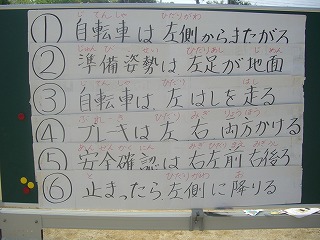 ① 自転車は左側からまたがる
② 準備姿勢は左足が地面
③ 自転車は、左はしを走る
④ ブレーキは左右両方かける
⑤ 安全確認は右左前右後ろ
⑥ 止まったら、左側に降りる